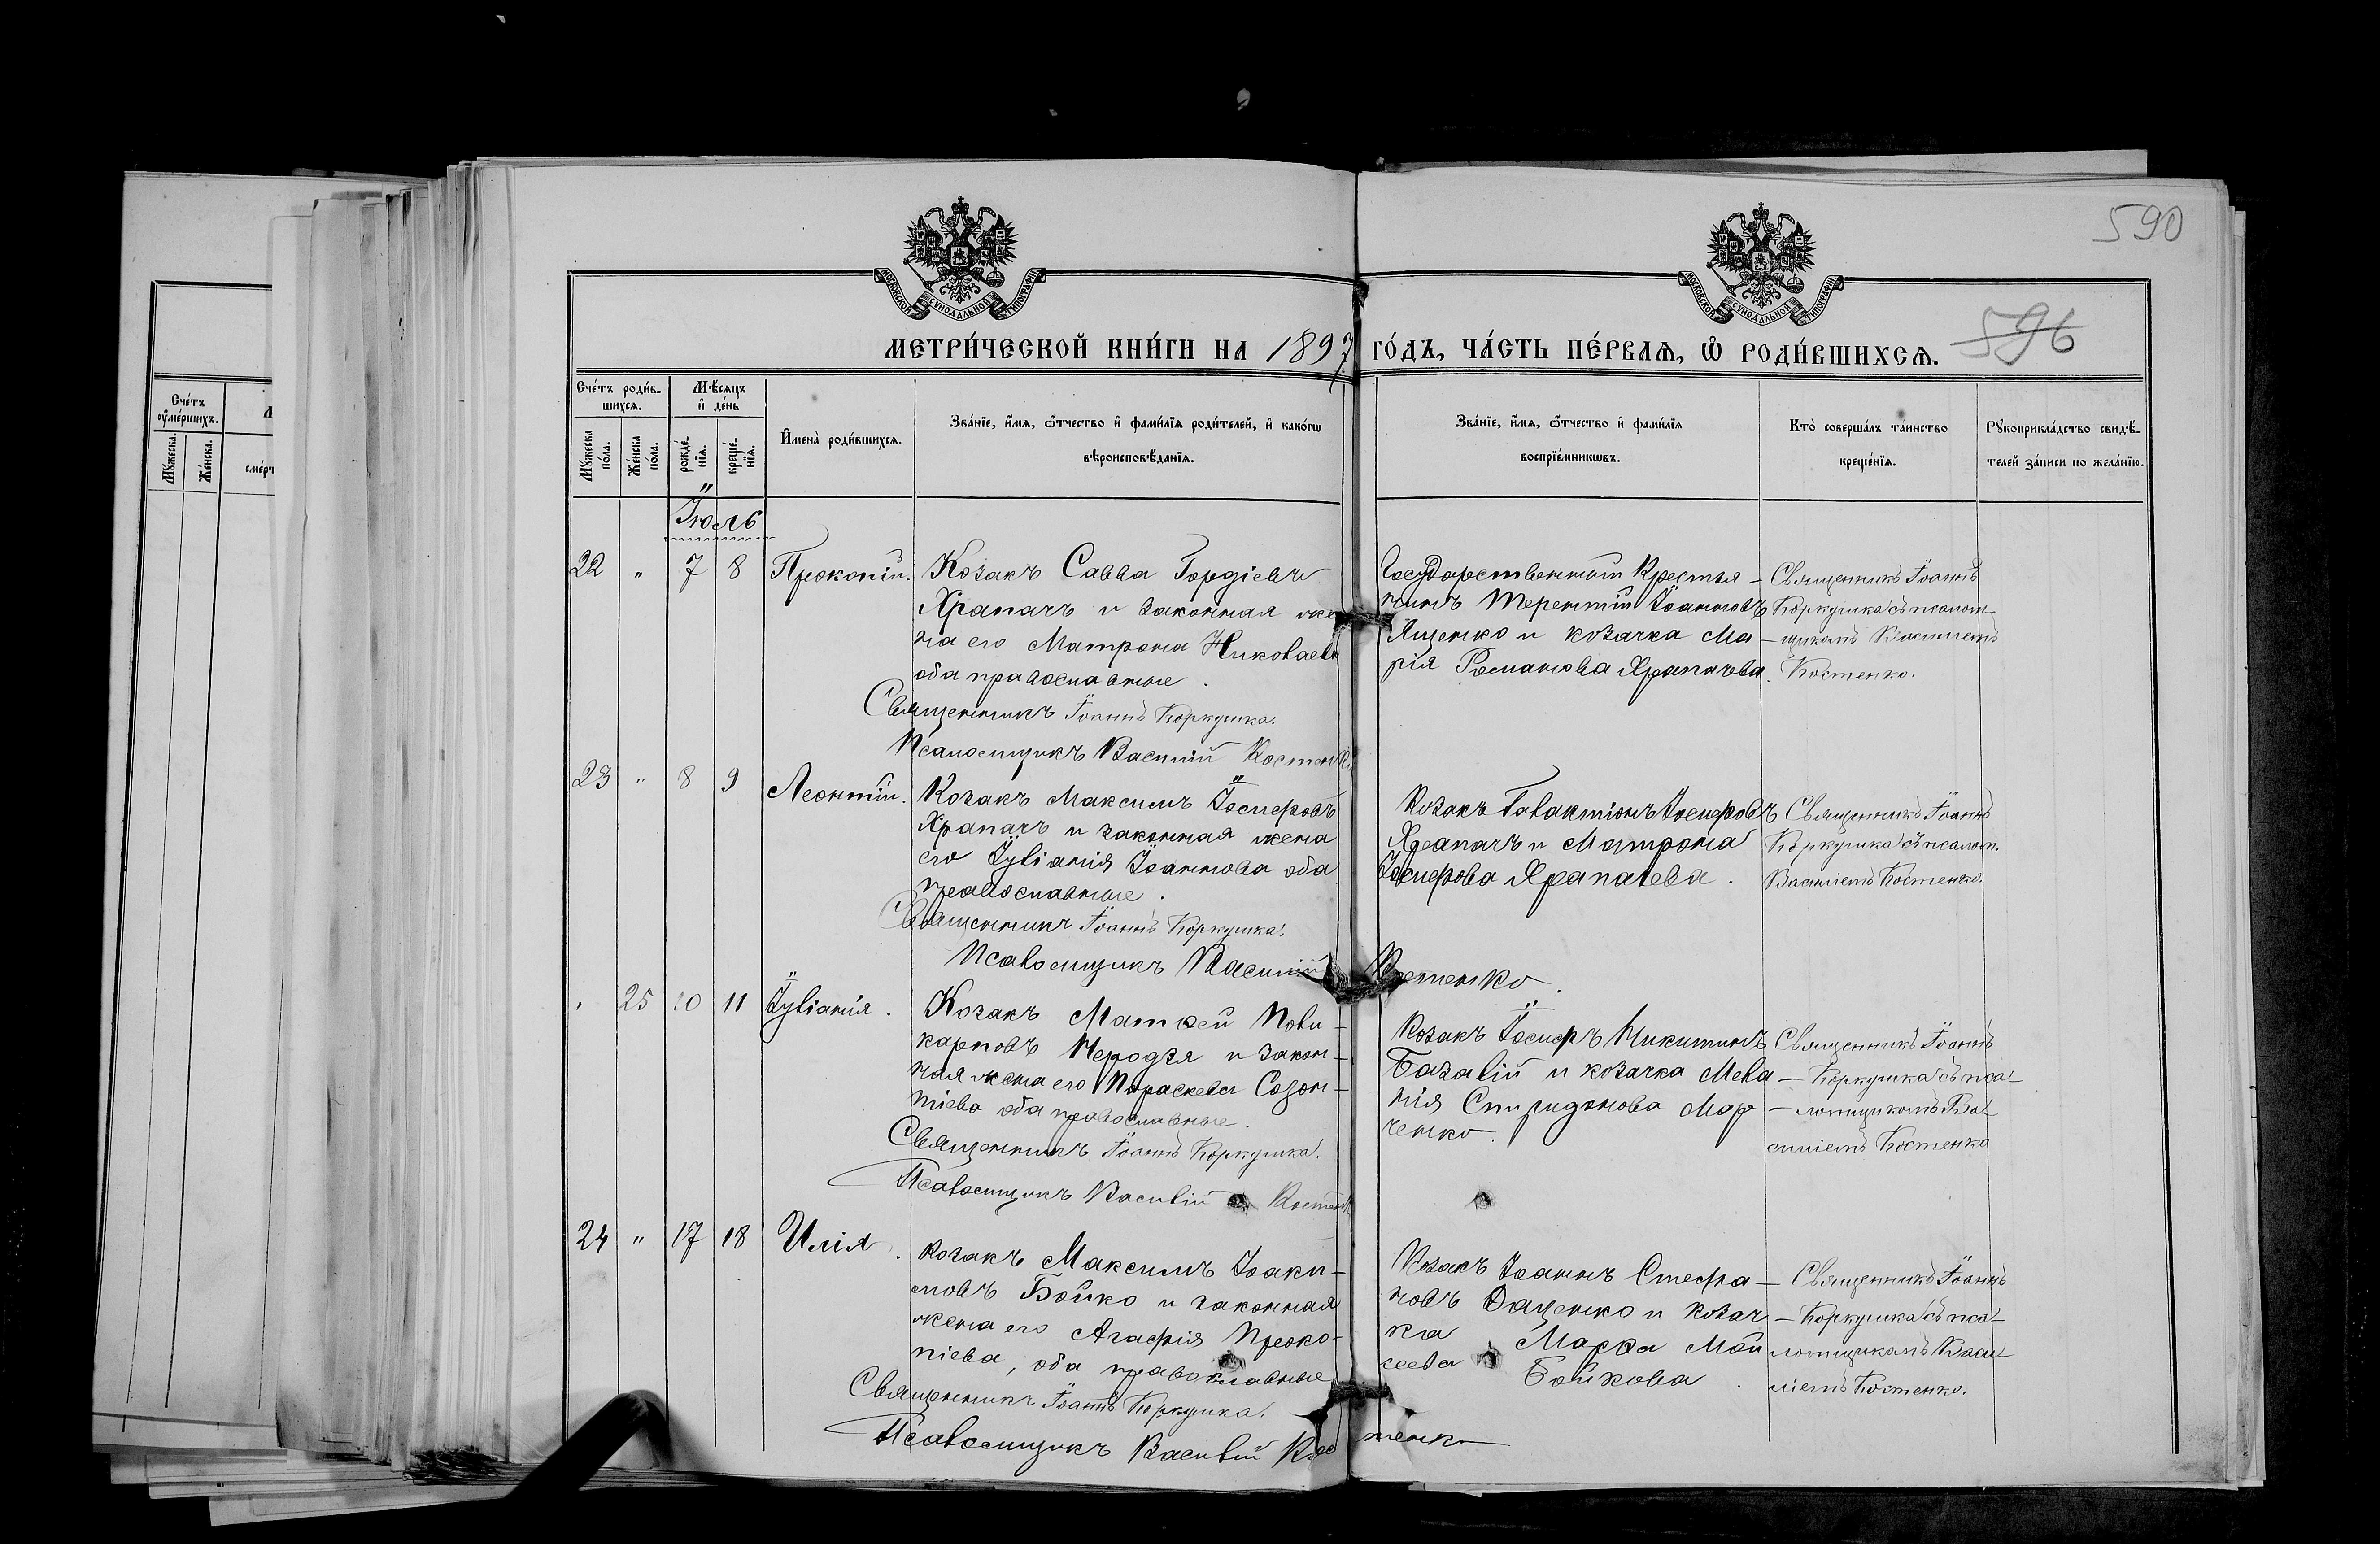 590
МОСКОВСКОЙ СѴНОДАЛЬНОЙ ТИПОГРАФІИ
МОСКОВСКОЙ СѴНОДАЛЬНОЙ ТИПОГРАФІИ
МЕТРИ́ЧЕСКОЙ КНИ́ГИ НА 1897 ГО́ДЪ, ЧА́СТЬ ПЕ́РВАѦ, Ѿ РОДИ́ВШИХСѦ.
596
Сче́тъ
оу҆ме́ршихъ.
Мꙋ́жеска.
Же́нска.
Сче́тъ роди́в-
шихсѧ.
Мѣ́сѧцъ
и҆ де́нь
Мꙋ́жеска по́ла.
Же́нска по́ла.
рожде́-нїѧ.
креще́-нїѧ.
И҆мена̀ роди́вшихсѧ.
Зва́нїе, и҆́мѧ, ѻ҆́тчество и҆ фами́лїѧ роди́телей, и҆ како́гѡ
вѣроисповѣ́данїѧ.
Зва́нїе, и҆́мѧ, ѻ҆́тчество и҆ фами́лїѧ
воспрїе́мникѡвъ.
Кто̀ соверша́лъ та́инство
креще́нїѧ.
Рꙋкоприкла́дство свидѣ́-
телей за́писи по жела́нїю.
Іюль
22 " 7 8 Прокопій.
Козакъ Савва Гордіевъ
Храпачъ и законная же
на его Матрона Николаевн
оба православные.
Священникъ Іоаннъ Коркушка.
Псаломщикъ Василій Костенко
Государственный Крестья-
нинъ Терентій Іоанновъ
Яценко и козачка Ма-
рія Романова Храпачева.
Священникъ Іоаннъ
Коркушка съ псалом-
щикомъ Василіемъ
Костенко.
23 " 8 9 Леонтій.
Козакъ Максимъ Іосифовъ
Храпачъ и законная жена
его Іуліанія Іоаннова оба
православные.
Священникъ Іоаннъ Коркушка.
Псаломщикъ Василій Костенко.
Козакъ Галактіонъ Іосифовъ
Храпачъ и Матрона
Іосифова Храпачева.
Священникъ Іоаннъ
Коркушка съ псалом.
Василіемъ Костенко.
" 25 10 11 Іуліанія.
Козакъ Матѳей Поли-
карповъ Чередзя и закон-
ная жена его Параскева Созон-
тіева оба православные.
Священникъ Іоаннъ Коркушка.
Псаломщикъ Василій Костенк
Козакъ Іосифъ Никитинъ
Базалій и козачка Мела-
нія Спиридонова Мар-
ченко.
Священникъ Іоаннъ
Коркушка съ пса-
ломщикомъ Ва-
силіемъ Костенко
24 " 17 18 Илія.
Козакъ Максимъ Іоаки-
мовъ Бойко и законная
жена его Агафія Проко-
піева, оба православные
Священникъ Іоаннъ Коркушка.
Псаломщикъ Василій Костенко
Козакъ Іоаннъ Стефа-
новъ Даценко и козач-
ка Марѳа Мои
сеева Бойкова.
Священникъ Іоаннъ
Коркушка съ пса-
ломщикомъ Васи-
ліемъ Костенко.